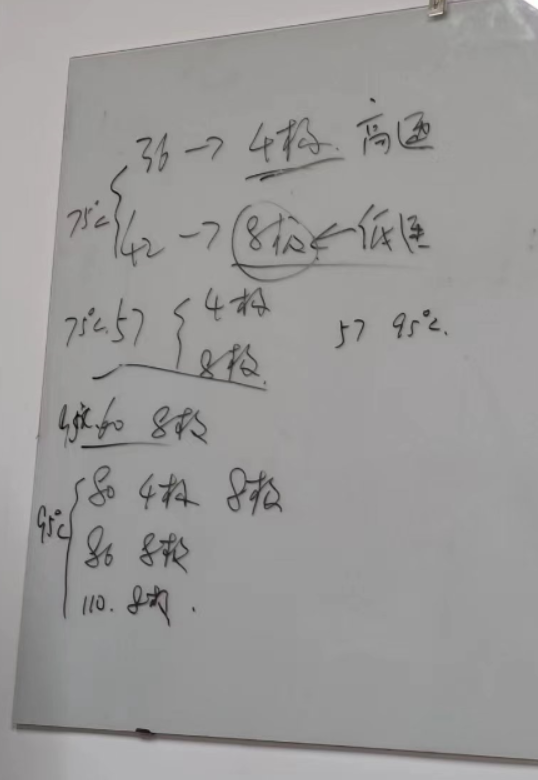 75℃ { 36 → 4极. 高速
42 → 8极 ← 低速
75℃. 57 { 4极
8极.
57 95℃.
95℃. 60 8极
95℃ { 80 4极 8极
86 8极
110. 8极.